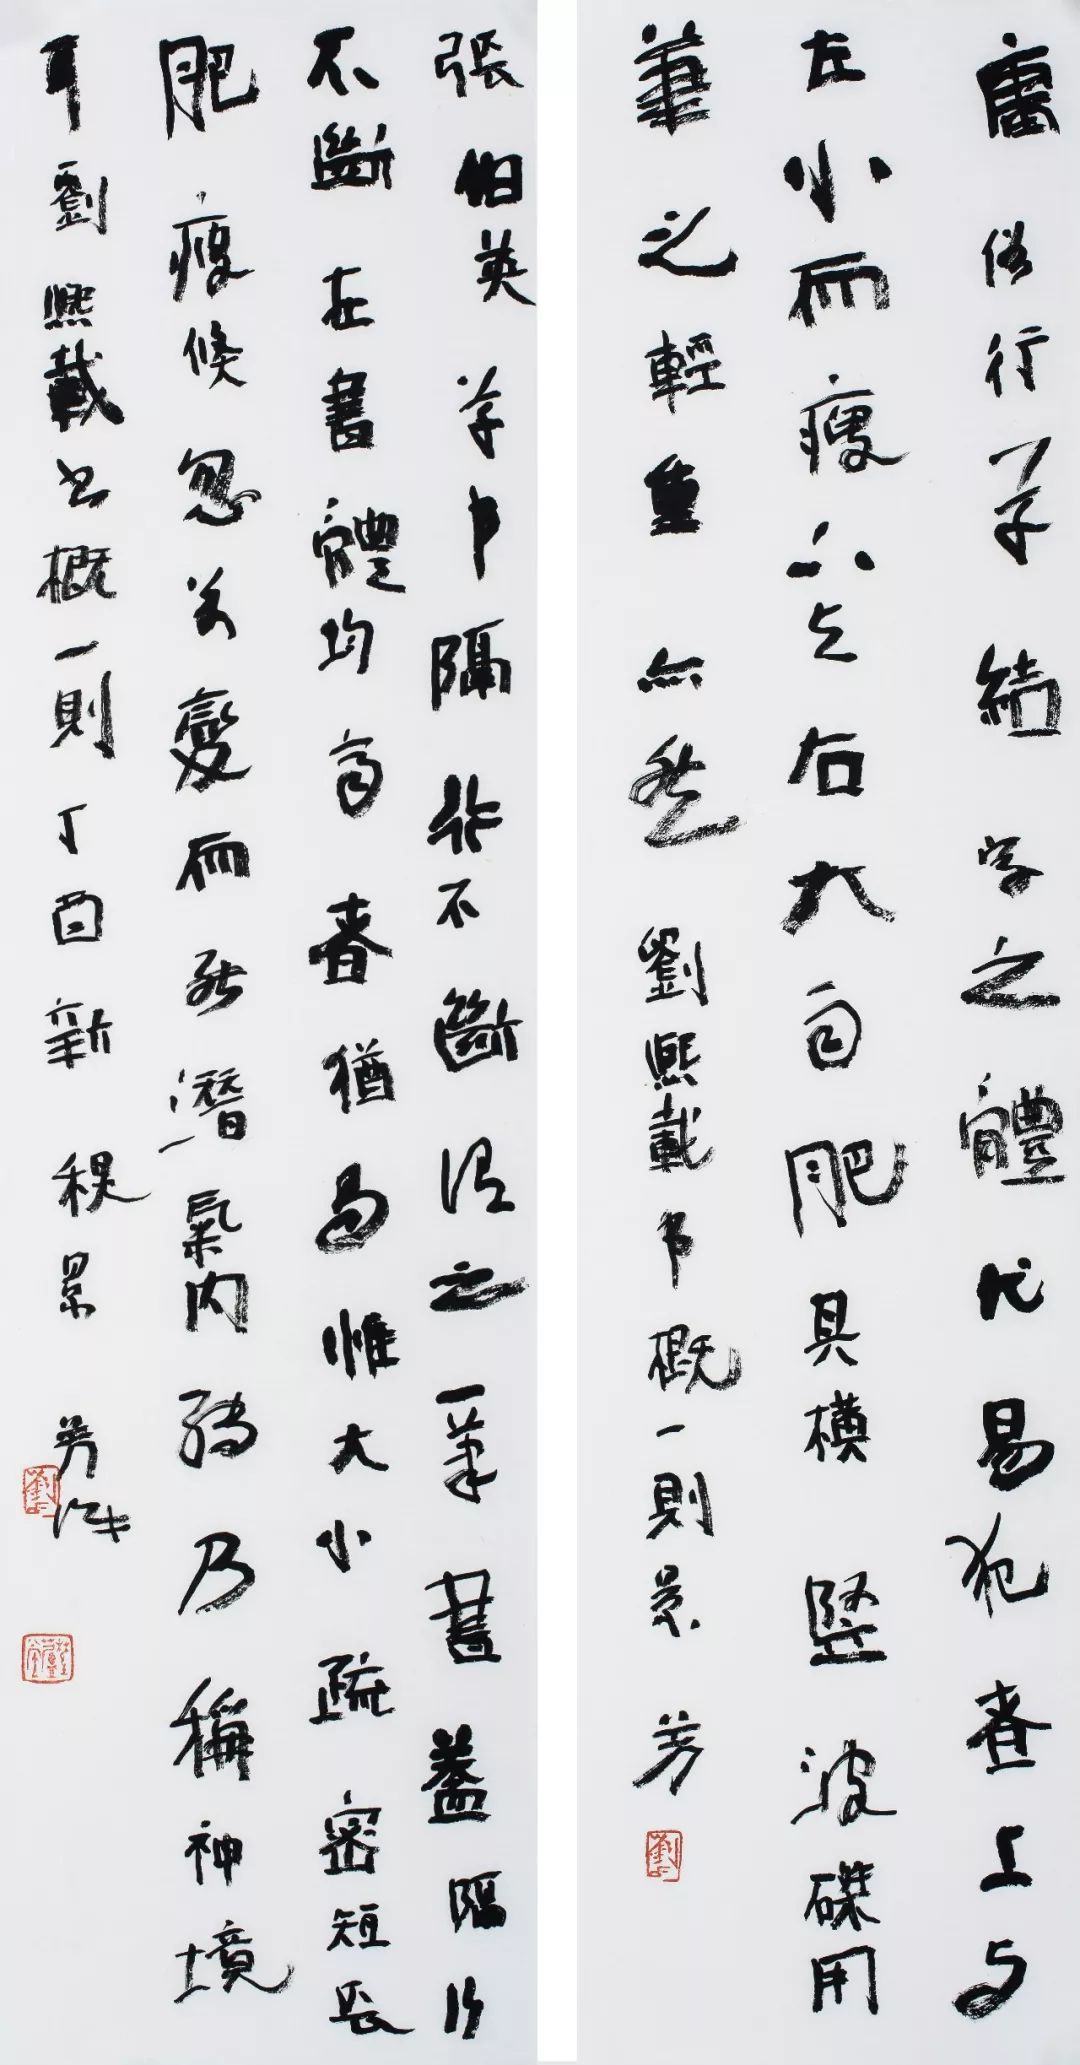 庸俗行草結字之體尤易犯者上与
左小而瘦下与右大而肥其橫豎波磔用
筆之輕重亦然 劉熙載书概一則景芳
張伯英草书隔行不斷谓之一筆書蓋隔行
不斷在書體均齊者猶易惟大小疏密短長
肥瘦倏忽万變而能潛氣內轉乃稱神境
耳劉熙載书概一則丁酉新 景芳